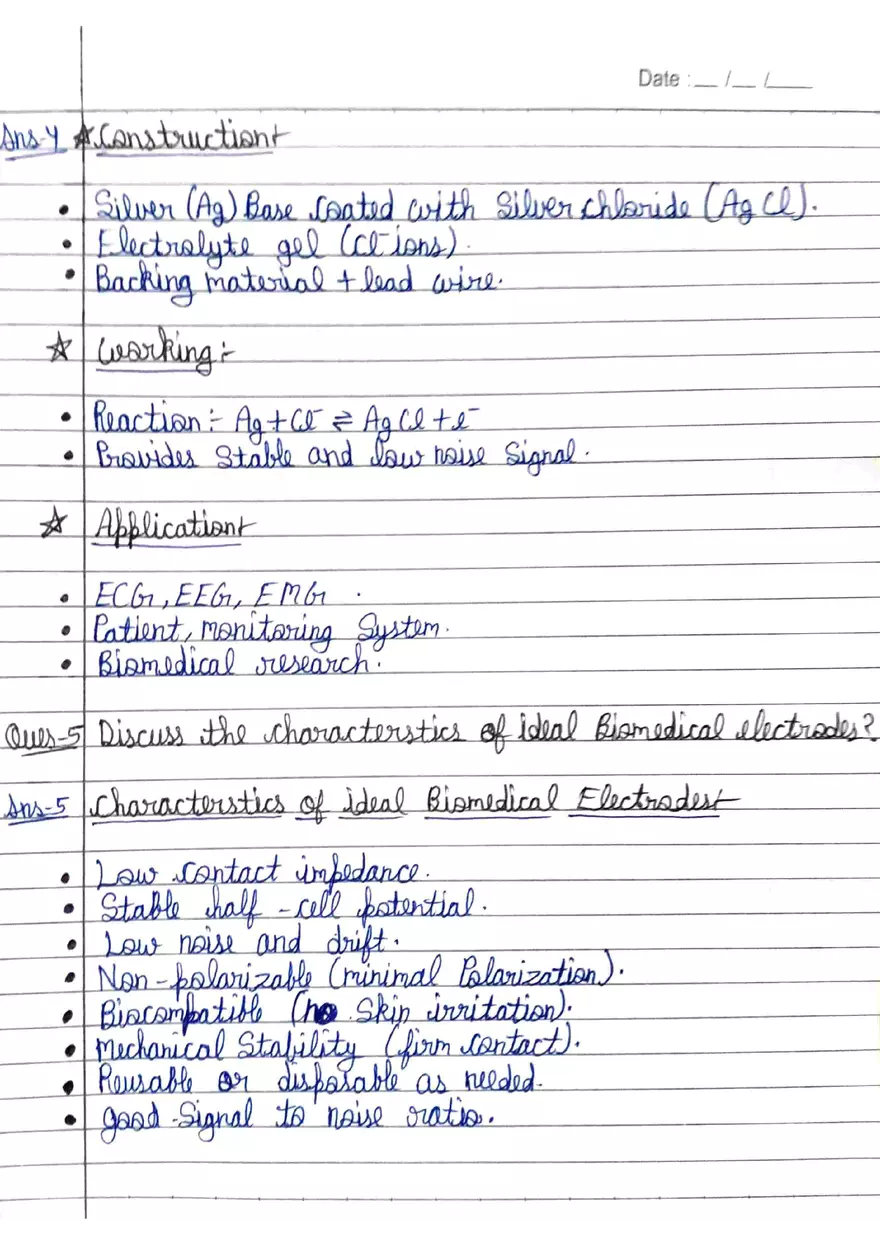 Date : __ /__ /____
Ans-4 ☆ Construction:-
• Silver (Ag) Base coated with Silver chloride (AgCl).
• Electrolyte gel (Cl⁻ ions).
• Backing material + lead wire.
☆ Working:-
• Reaction :- Ag + Cl⁻ ⇌ AgCl + e⁻
• Provides Stable and low noise Signal.
☆ Application:-
• ECG, EEG, EMG.
• Patient, monitoring System.
• Biomedical research.
Ques-5 Discuss the characterstics of ideal Biomedical electrodes?
Ans-5 Characterstics of ideal Biomedical Electrodes:-
• Low contact impedance.
• Stable half-cell potential.
• Low noise and drift.
• Non-polarizable (minimal Polarization).
• Biocompatible (no Skin irritation).
• Mechanical Stability (firm contact).
• Reusable or disposable as needed.
• good Signal to noise ratio.